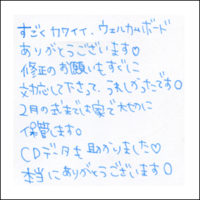 すごくカワイイ、ウェルカムボード
ありがとうございます♡
修正のお願いもすぐに
対応して下さって、うれしかったです♡
2月の式までは家で大切に
保管します。
CDデータも助かりました♡
本当にありがとうございます♡